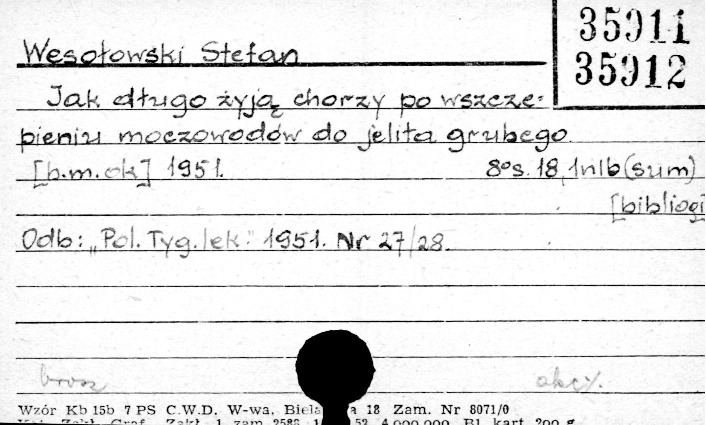 35911
35912
Wesołowski Stefan
Jak długo żyją chorzy po wszcze=
pieniu moczowodów do jelita grubego.
[b.m.ok] 1951. 8°s. 18, 1nlb (sum)
[bibliogr]
Odb: „Pol. Tyg. lek." 1951. Nr 27/28.
brosz akc.
Wzór Kb 15b 7 PS C.W.D. W-wa, Biela a 18 Zam. Nr 8071/0
Zakł. Graf. Zakł. 1 zam. 2586 52 4.000.000 Bl. kart. 200 g